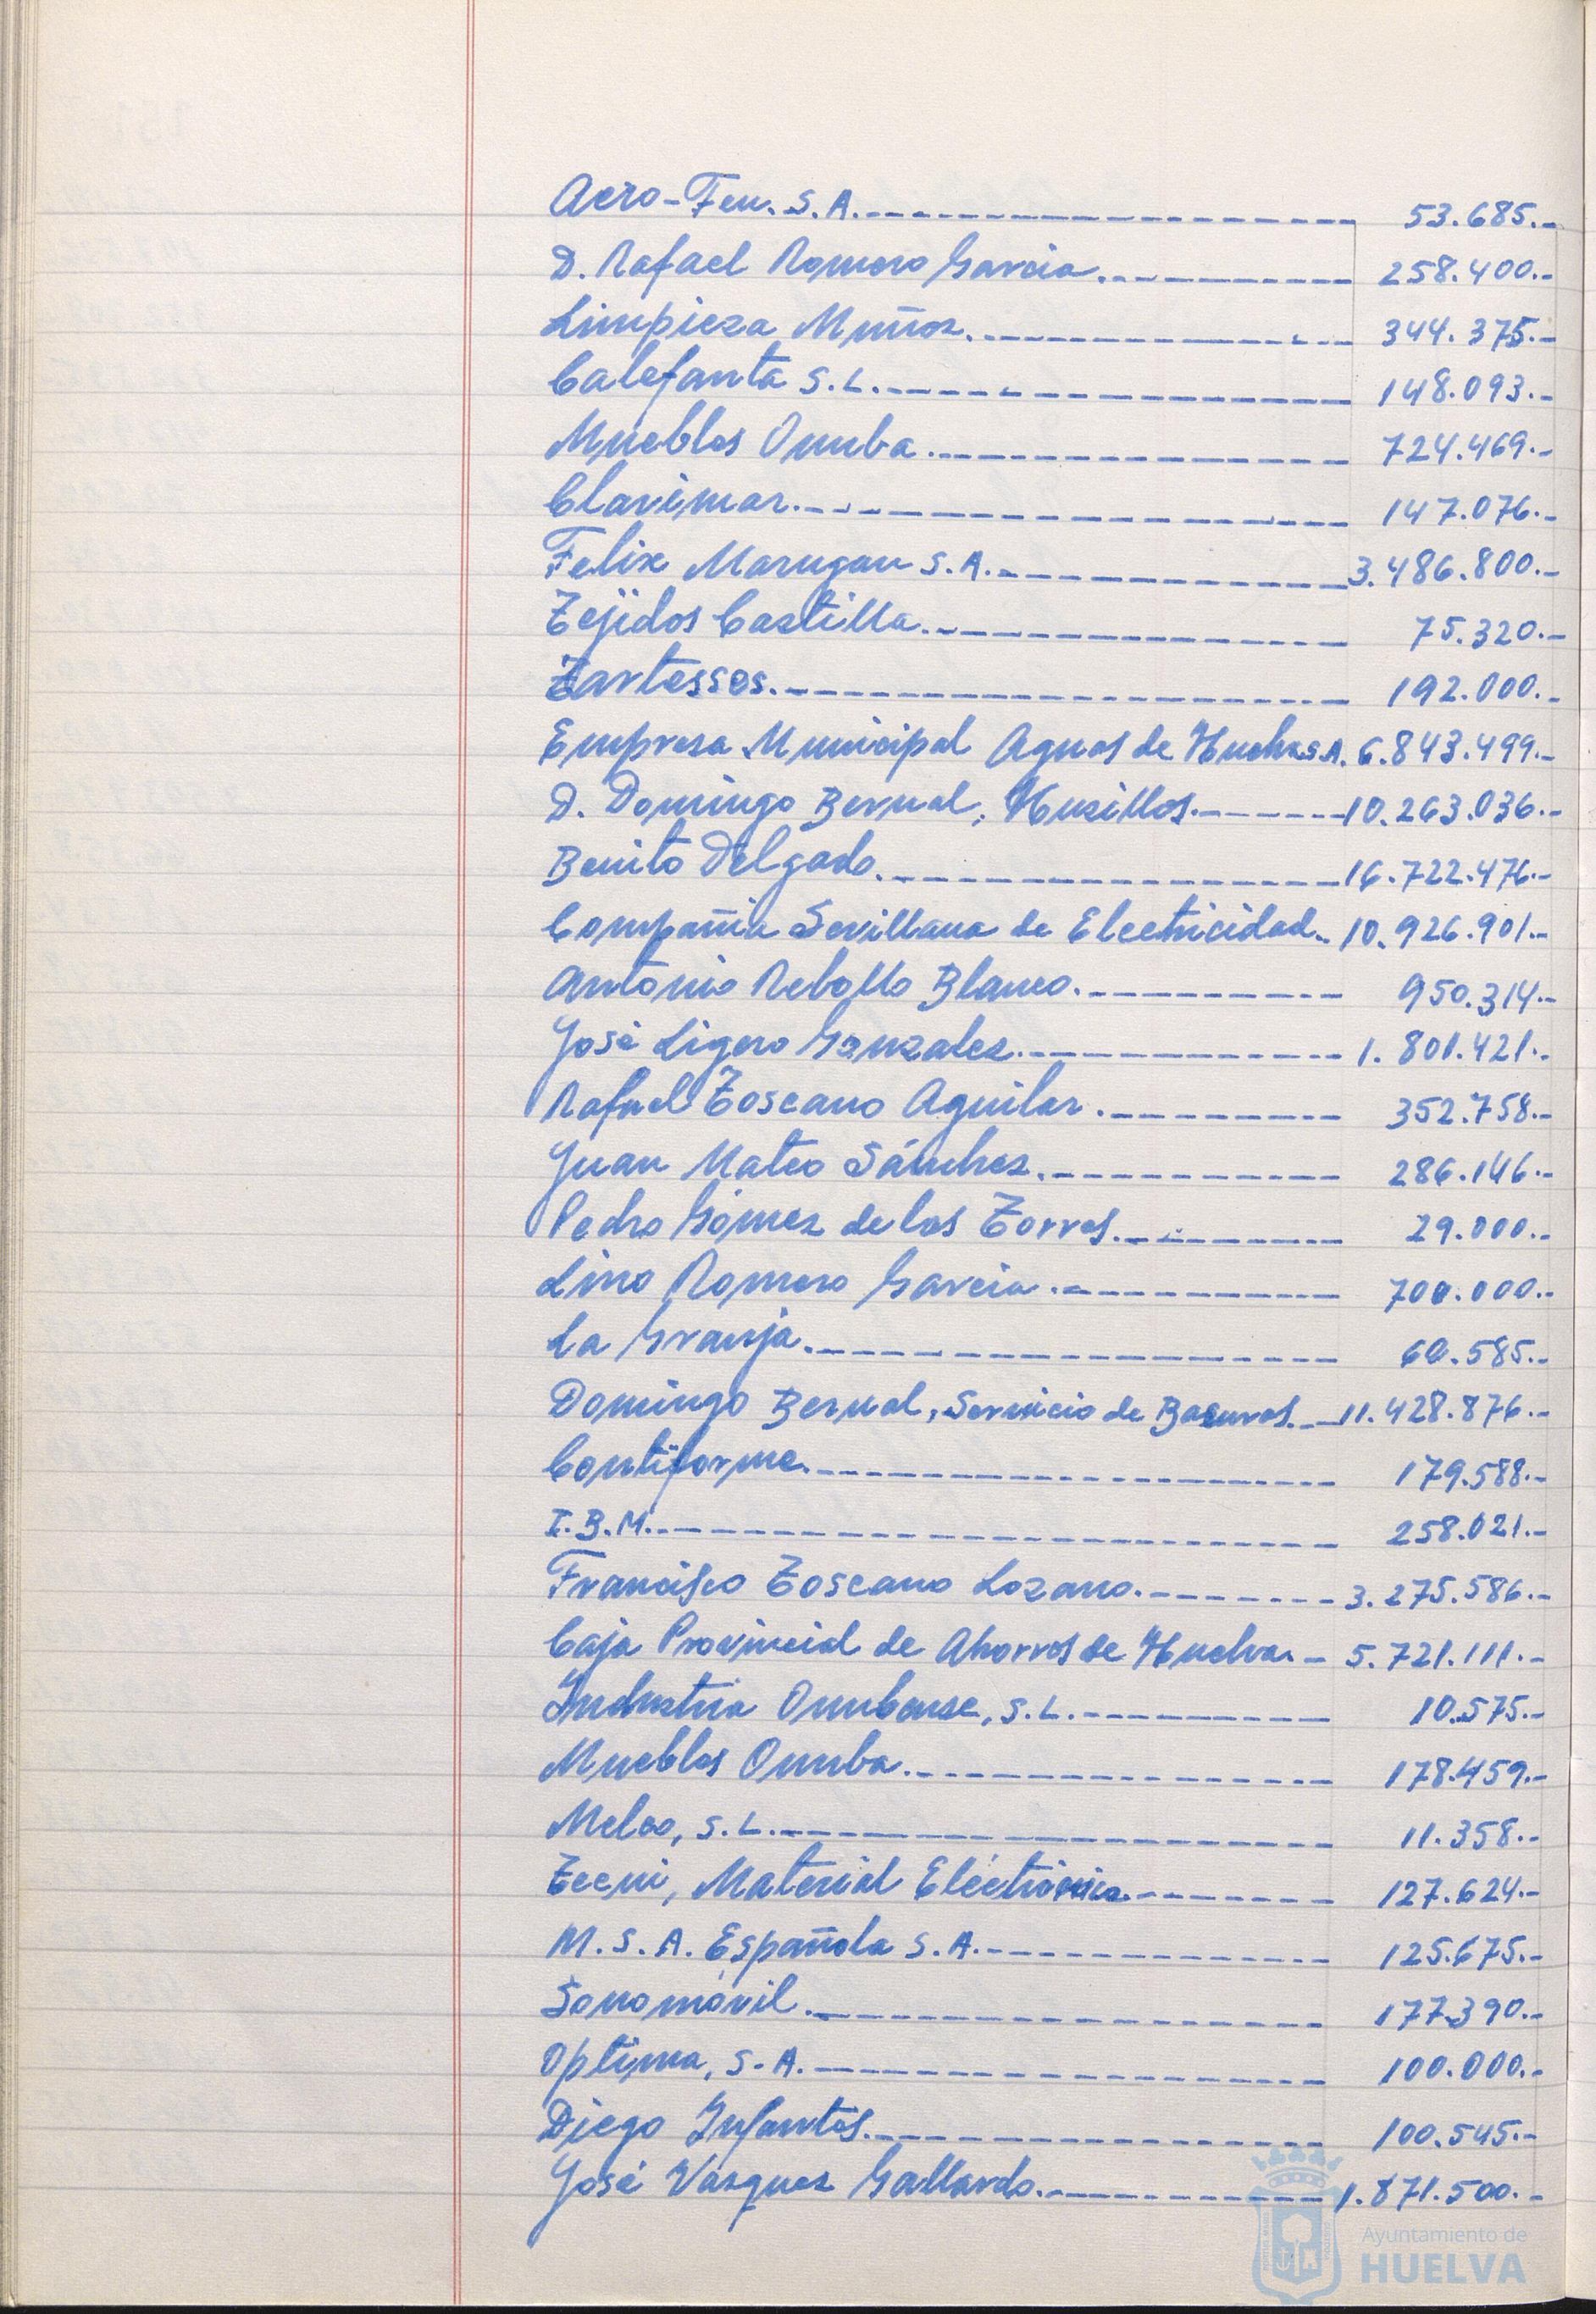 Aero-Feu. S.A. 53.685.-
D. Rafael Romero Garcia 258.400.-
Limpieza Muñoz 344.375.-
Calefanta S.L. 148.093.-
Muebles Onuba 724.469.-
Clavimar 147.076.-
Felix Marugan S.A. 3.486.800.-
Tejidos Castilla 75.320.-
Tartessos 192.000.-
Empresa Municipal Aguas de Huelva S.A. 6.843.499.-
D. Domingo Bernal, Husillos 10.263.036.-
Benito Delgado 16.722.476.-
Compañia Sevillana de Electricidad 10.926.901.-
Antonio Rebollo Blanco 950.314.-
José Ligero Gonzalez 1.801.421.-
Rafael Toscano Aguilar 352.758.-
Juan Mateo Sánchez 286.146.-
Pedro Gómez de los Torres 29.000.-
Lino Romero Garcia 700.000.-
La Granja 60.585.-
Domingo Bernal, Servicio de Basuras 11.428.876.-
Contiforme 179.588.-
I.B.M. 258.021.-
Francisco Toscano Lozano 3.275.586.-
Caja Provincial de Ahorros de Huelva 5.721.111.-
Industria Onubense, S.L. 10.575.-
Muebles Onuba 178.459.-
Melco, S.L. 11.358.-
Tecni, Material Eléctrónico 127.624.-
M.S.A. Española S.A. 125.675.-
Sonomóvil 177.390.-
Optima, S.A. 100.000.-
Diego Infantes 100.545.-
José Vázquez Gallardo 1.871.500.-
Ayuntamiento de
HUELVA